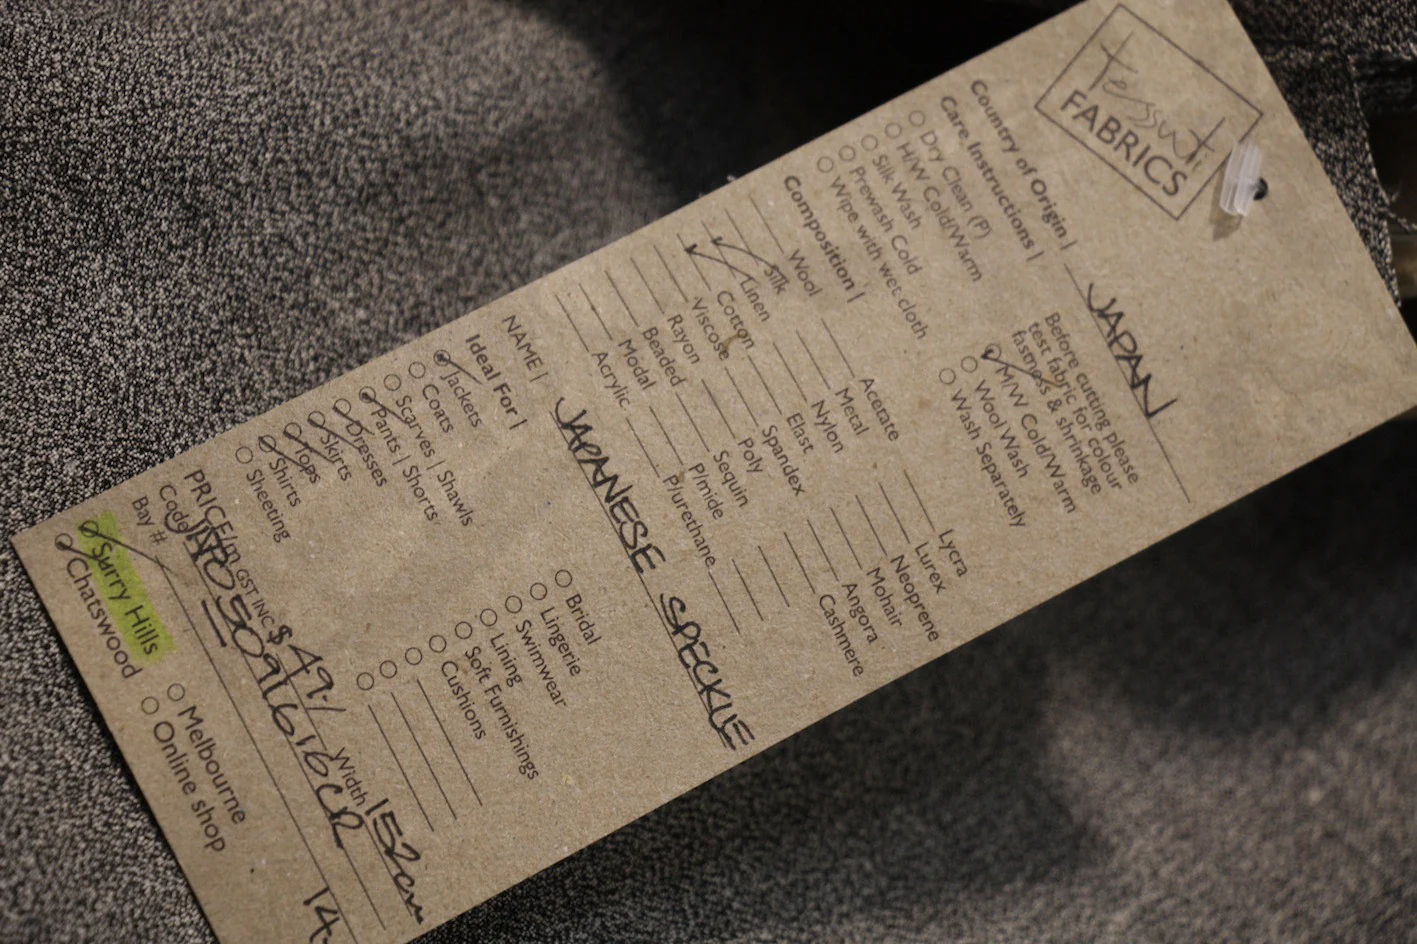 tessuti
FABRICS
Country of Origin | JAPAN
Care Instructions | Before cutting please
test fabric for colour
fastness & shrinkage
Dry Clean (P) M/W Cold/Warm
H/W Cold/Warm Wool Wash
Silk Wash Wash Separately
Prewash Cold
Wipe with wet cloth
Composition |
Wool Acetate Lycra
Silk Metal Lurex
Linen Nylon Neoprene
Cotton Elast Mohair
Viscose Spandex Angora
Rayon Poly Cashmere
Beaded Sequin
Modal P/mide
Acrylic P/urethane
NAME | JAPANESE SPECKLE
Ideal For |
Jackets Bridal
Coats Lingerie
Scarves | Shawls Swimwear
Pants | Shorts Lining
Dresses Soft Furnishings
Skirts Cushions
Tops
Shirts
Sheeting
PRICE/m GST INC $49.- Width 152cm
Code
Bay #
Surry Hills Melbourne
Chatswood Online shop